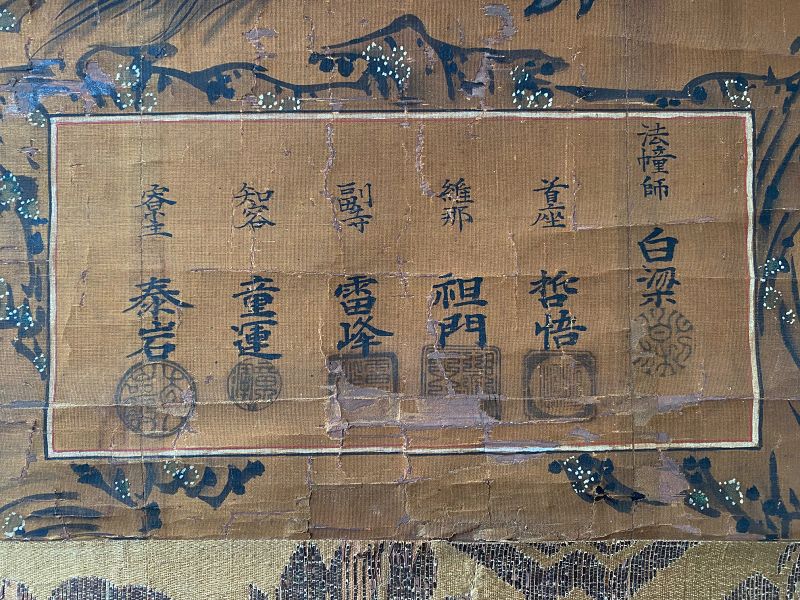 法幢師 白梁
首座 哲悟
維那 祖門
副寺 雷峰
知客 童運
泰岩